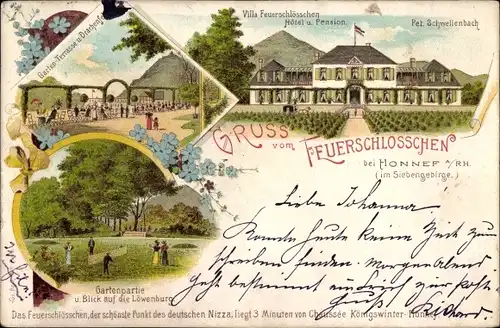 Garten-Terrasse u. Drachenfels
Villa Feuerschlösschen
Hôtel u. Pension.
Pet. Schwellenbach
GRUSS vom FEUERSCHLÖSSCHEN
bei HONNEF a/RH.
(im Siebengebirge.)
Liebe Johanna!
Konnte heute keine Zeit zum
schreiben finden. Morgen Abend
geht bestimmt ein Brief zur Post
Gruß Richard.
Gartenpartie
u. Blick auf die Löwenburg
Das Feuerschlösschen, der schönste Punkt des deutschen Nizza, liegt 3 Minuten von Chaussée Königswinter-Honnef